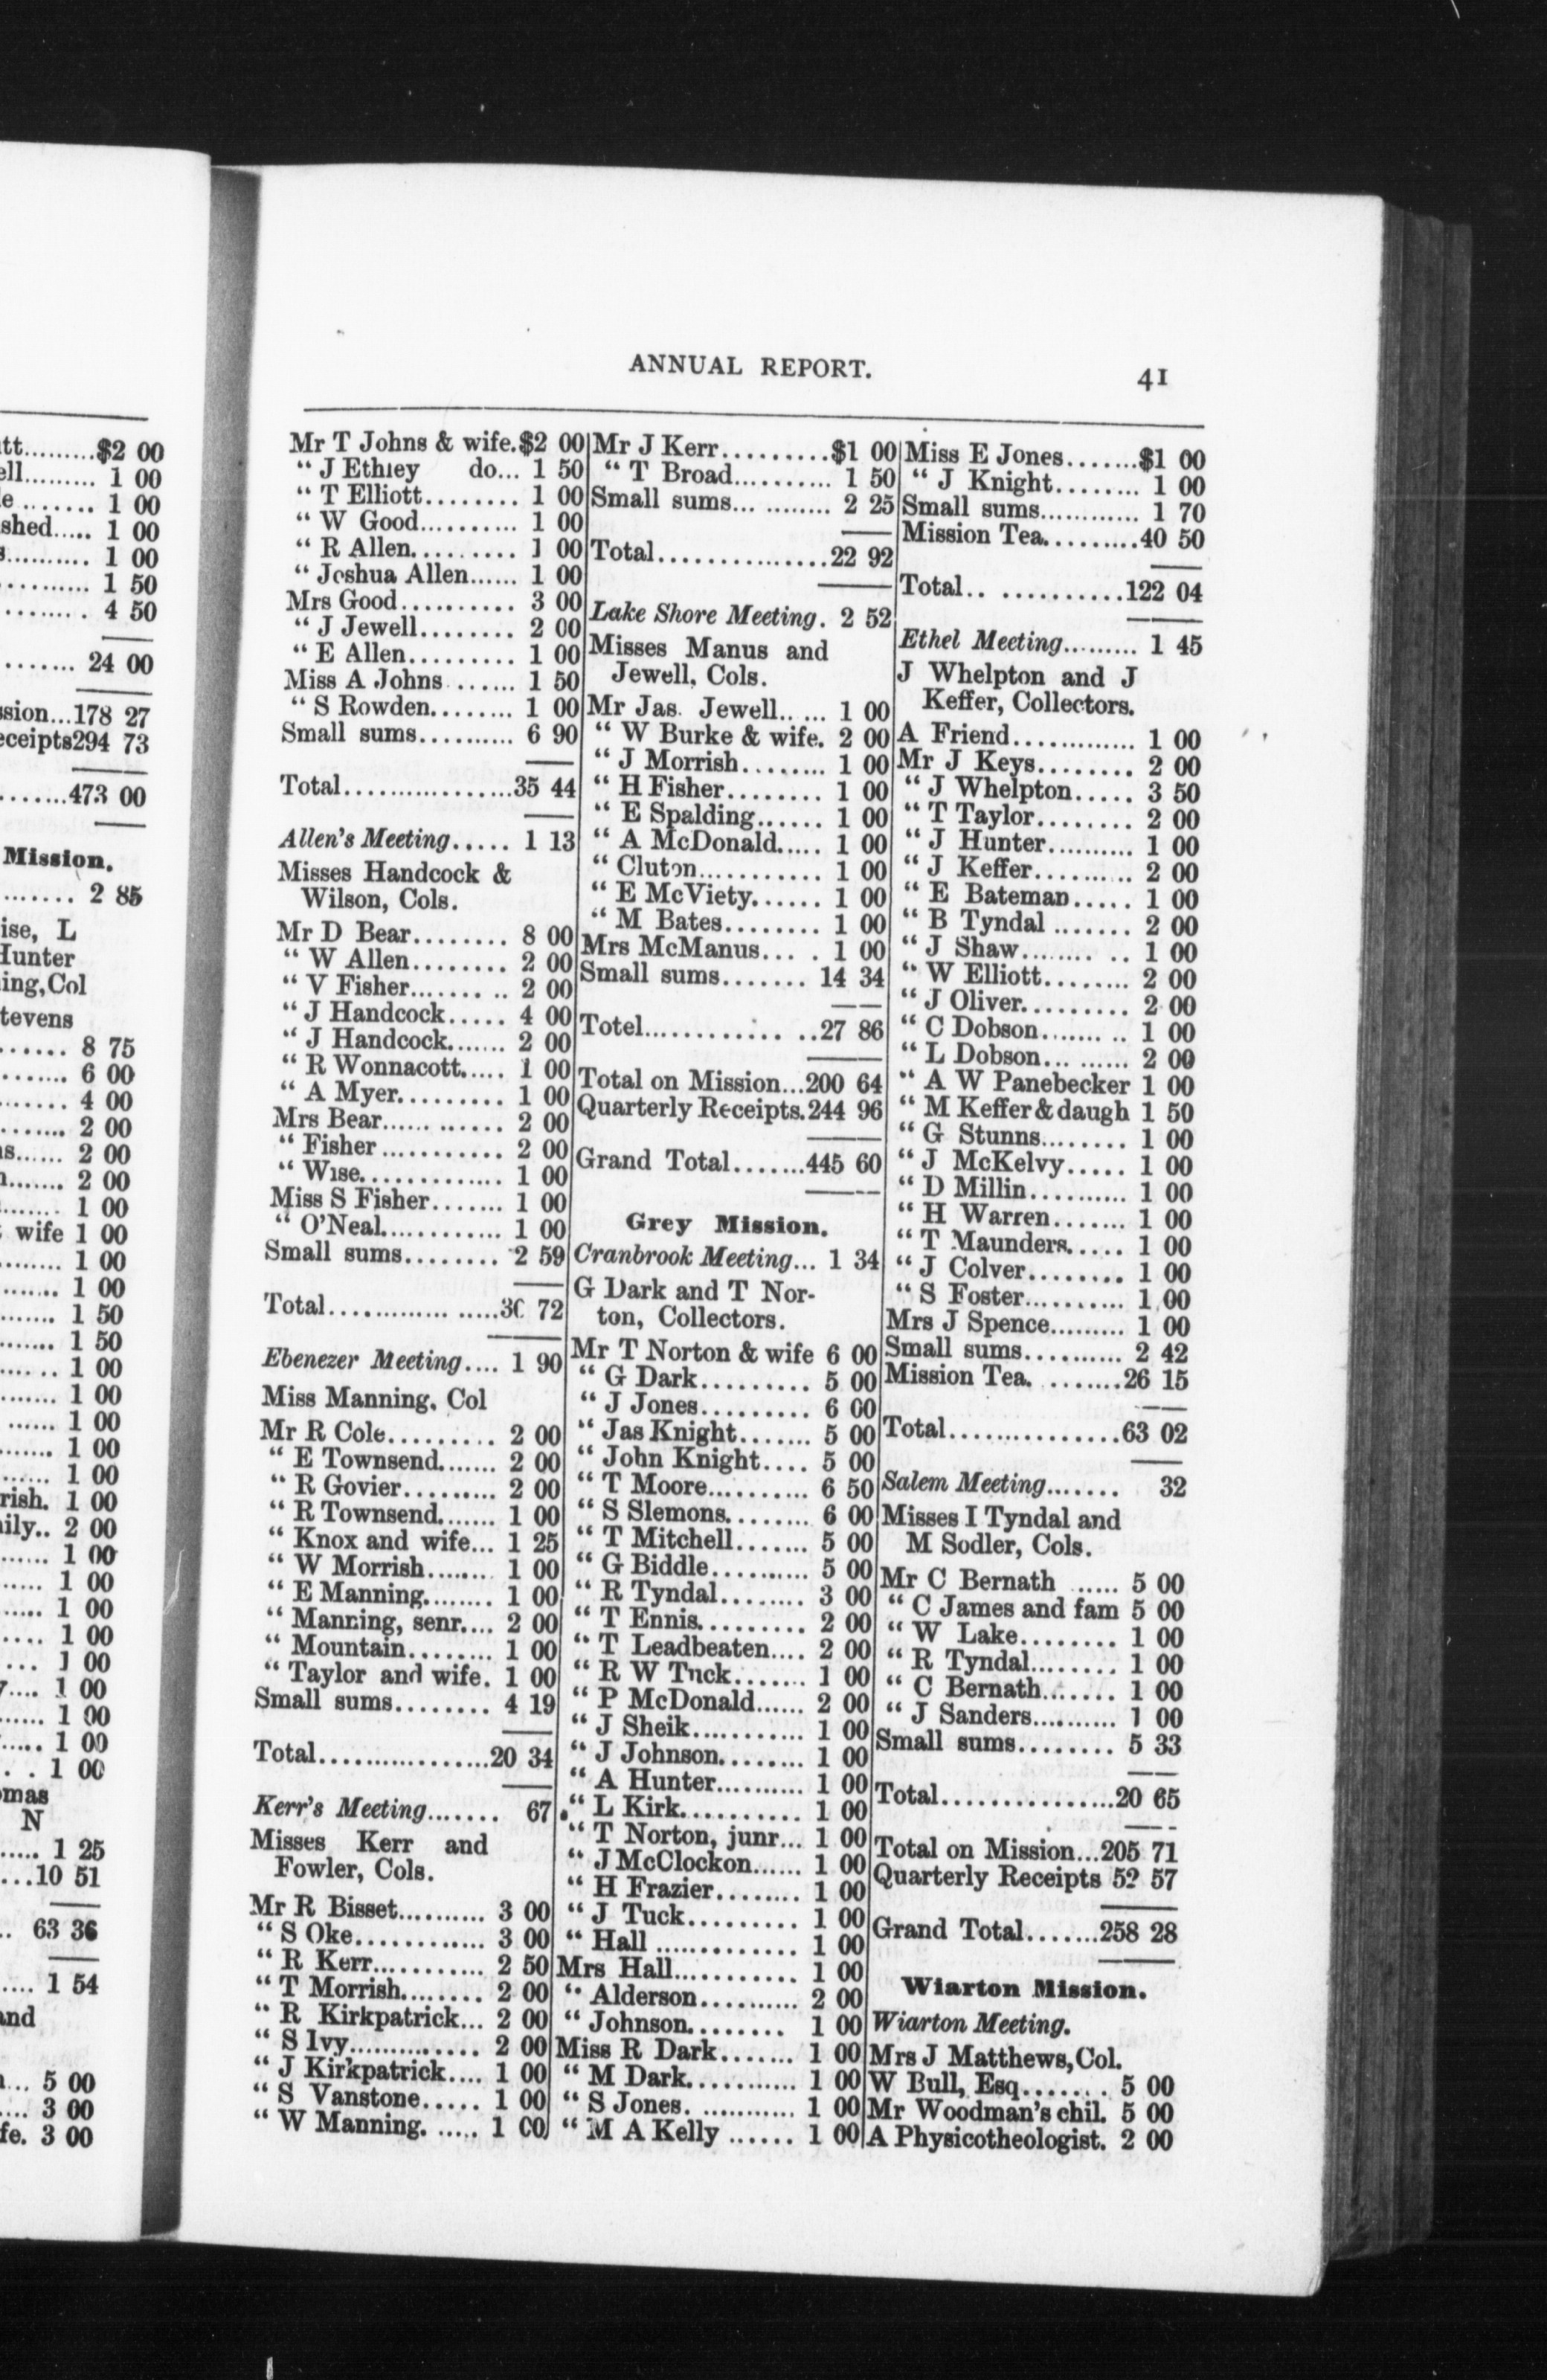 tt.........$2 00
ell......... 1 00
e ....... 1 00
shed..... 1 00
s.......... 1 00
.......... 1 50
......... 4 50
....... 24 00
ssion...178 27
eceipts294 73
.......473 00
Mission.
....... 2 85
ise, L
Hunter
ing,Col
tevens
...... 8 75
....... 6 00
...... 4 00
....... 2 00
s...... 2 00
....... 2 00
....... 1 00
wife 1 00
......... 1 00
...... 1 00
....... 1 50
....... 1 50
...... 1 00
........ 1 00
...... 1 00
....... 1 00
...... 1 00
rish. 1 00
ily.. 2 00
...... 1 00
...... 1 00
..... 1 00
.... 1 00
... 1 00
.... 1 00
...... 1 00
..... 1 00
. . 1 00
omas
N
..... 1 25
...10 51
.. 63 36
.... 1 54
and
... 5 00
.... 3 00
fe. 3 00
ANNUAL REPORT.
41
Mr T Johns & wife.$2 00
“ J Ethley do... 1 50
“ T Elliott........ 1 00
“ W Good.......... 1 00
“ R Allen......... 1 00
“ Joshua Allen...... 1 00
Mrs Good.......... 3 00
“ J Jewell........ 2 00
“ E Allen......... 1 00
Miss A Johns ...... 1 50
“ S Rowden........ 1 00
Small sums.......... 6 90
Total.................35 44
Allen's Meeting..... 1 13
Misses Handcock &
Wilson, Cols.
Mr D Bear........ 8 00
“ W Allen........ 2 00
“ V Fisher......... 2 00
“ J Handcock..... 4 00
“ J Handcock....... 2 00
“ R Wonnacott..... 1 00
“ A Myer......... 1 00
Mrs Bear............ 2 00
“ Fisher ........... 2 00
“ Wise............. 1 00
Miss S Fisher....... 1 00
“ O'Neal............ 1 00
Small sums........ 2 59
Total..................30 72
Ebenezer Meeting.... 1 90
Miss Manning, Col
Mr R Cole.......... 2 00
“ E Townsend....... 2 00
“ R Govier......... 2 00
“ R Townsend....... 1 00
“ Knox and wife... 1 25
“ W Morrish........ 1 00
“ E Manning........ 1 00
“ Manning, senr.... 2 00
“ Mountain......... 1 00
“ Taylor and wife. 1 00
Small sums........ 4 19
Total.................20 34
Kerr's Meeting....... 67
Misses Kerr and
Fowler, Cols.
Mr R Bisset.......... 3 00
“ S Oke............ 3 00
“ R Kerr........... 2 50
“ T Morrish........ 2 00
“ R Kirkpatrick... 2 00
“ S Ivy............. 2 00
“ J Kirkpatrick.... 1 00
“ S Vanstone..... 1 00
“ W Manning. ..... 1 00
Mr J Kerr..........$1 00
“ T Broad.......... 1 50
Small sums... ......... 2 25
Total................22 92
Lake Shore Meeting. 2 52
Misses Manus and
Jewell, Cols.
Mr Jas. Jewell.. ... 1 00
“ W Burke & wife. 2 00
“ J Morrish........ 1 00
“ H Fisher........ 1 00
“ E Spalding...... 1 00
“ A McDonald..... 1 00
“ Cluton............ 1 00
“ E McViety...... 1 00
“ M Bates......... 1 00
Mrs McManus... . 1 00
Small sums....... 14 34
Totel........... . ..27 86
Total on Mission...200 64
Quarterly Receipts.244 96
Grand Total.......445 60
Grey Mission.
Cranbrook Meeting... 1 34
G Dark and T Nor-
ton, Collectors.
Mr T Norton & wife 6 00
“ G Dark.......... 5 00
“ J Jones.......... 6 00
“ Jas Knight....... 5 00
“ John Knight.... 5 00
“ T Moore.......... 6 50
“ S Slemons......... 6 00
“ T Mitchell....... 5 00
“ G Biddle.......... 5 00
“ R Tyndal......... 3 00
“ T Ennis.......... 2 00
“ T Leadbeaten.... 2 00
“ R W Tuck....... 1 00
“ P McDonald...... 2 00
“ J Sheik........... 1 00
“ J Johnson......... 1 00
“ A Hunter........... 1 00
“ L Kirk........... 1 00
“ T Norton, junr... 1 00
“ J McClockon...... 1 00
“ H Frazier......... 1 00
“ J Tuck.......... 1 00
“ Hall .............. 1 00
Mrs Hall............ 1 00
“ Alderson.......... 2 00
“ Johnson......... 1 00
Miss R Dark....... 1 00
“ M Dark........... 1 00
“ S Jones. ........... 1 00
“ M A Kelly ...... 1 00
Miss E Jones.......$1 00
“ J Knight........ 1 00
Small sums............ 1 70
Mission Tea.........40 50
Total.. ...........122 04
Ethel Meeting......... 1 45
J Whelpton and J
Keffer, Collectors.
A Friend............. 1 00
Mr J Keys......... 2 00
“ J Whelpton..... 3 50
“ T Taylor......... 2 00
“ J Hunter.......... 1 00
“ J Keffer.......... 2 00
“ E Bateman..... 1 00
“ B Tyndal ....... 2 00
“ J Shaw........ .. 1 00
“ W Elliott........ 2 00
“ J Oliver.......... 2 00
“ C Dobson........ .. 1 00
“ L Dobson... ...... 2 00
“ A W Panebecker 1 00
“ M Keffer & daugh 1 50
“ G Stunns........ 1 00
“ J McKelvy..... 1 00
“ D Millin.......... 1 00
“ H Warren....... 1 00
“ T Maunders..... 1 00
“ J Colver........ 1 00
“ S Foster.......... 1 00
Mrs J Spence......... 1 00
Small sums.......... 2 42
Mission Tea. ........26 15
Total................63 02
Salem Meeting....... 32
Misses I Tyndal and
M Sodler, Cols.
Mr C Bernath ...... 5 00
“ C James and fam 5 00
“ W Lake......... 1 00
“ R Tyndal........ 1 00
“ C Bernath....... 1 00
“ J Sanders.......... 1 00
Small sums......... 5 33
Total................20 65
Total on Mission...205 71
Quarterly Receipts 52 57
Grand Total.......258 28
Wiarton Mission.
Wiarton Meeting.
Mrs J Matthews, Col.
W Bull, Esq....... . 5 00
Mr Woodman's chil. 5 00
A Physicotheologist. 2 00